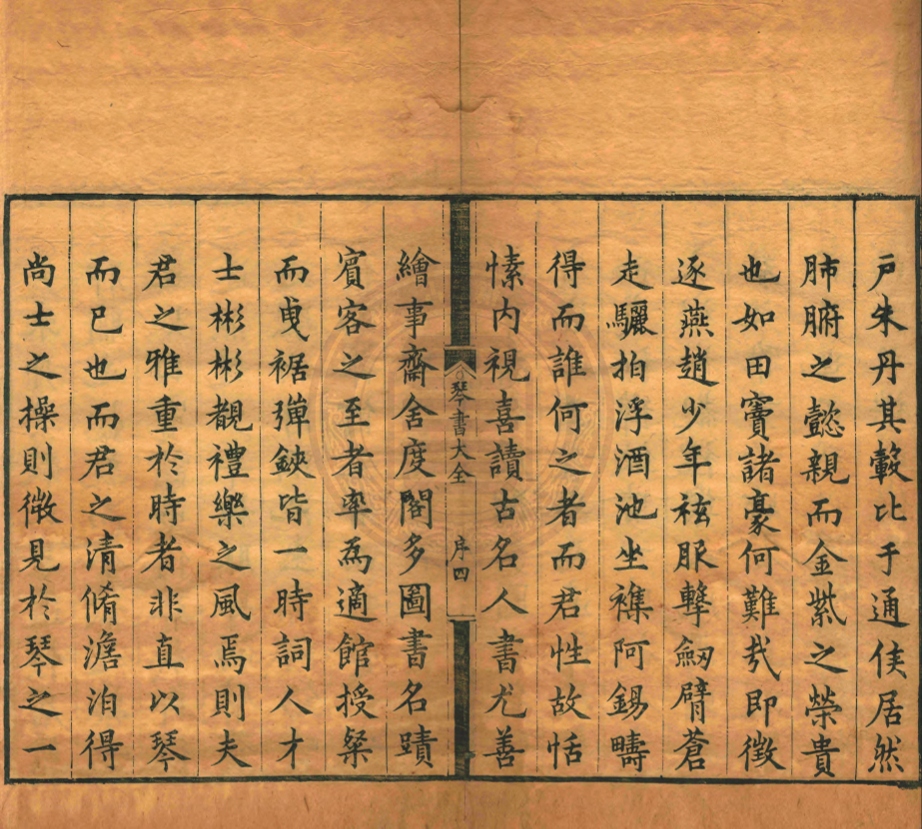 戸朱丹其轂比于通侯居然
肺腑之懿親而金紫之榮貴
也如田竇諸豪何難㢤即徴
逐燕趙少年袨服擊劒臂蒼
走驪拍浮酒池坐襍阿錫疇
得而誰何之者而君性故恬
愫内視喜讀古名人書尤善
琴書大全 序四
繪事齋舍度閣多圖書名蹟
賓客之至者率為適館授粲
而曳裾彈鋏皆一時詞人才
士彬彬覩禮樂之風焉則夫
君之雅重於時者非直以琴
而已也而君之清脩澹泊得
尚士之操則微見於琴之一